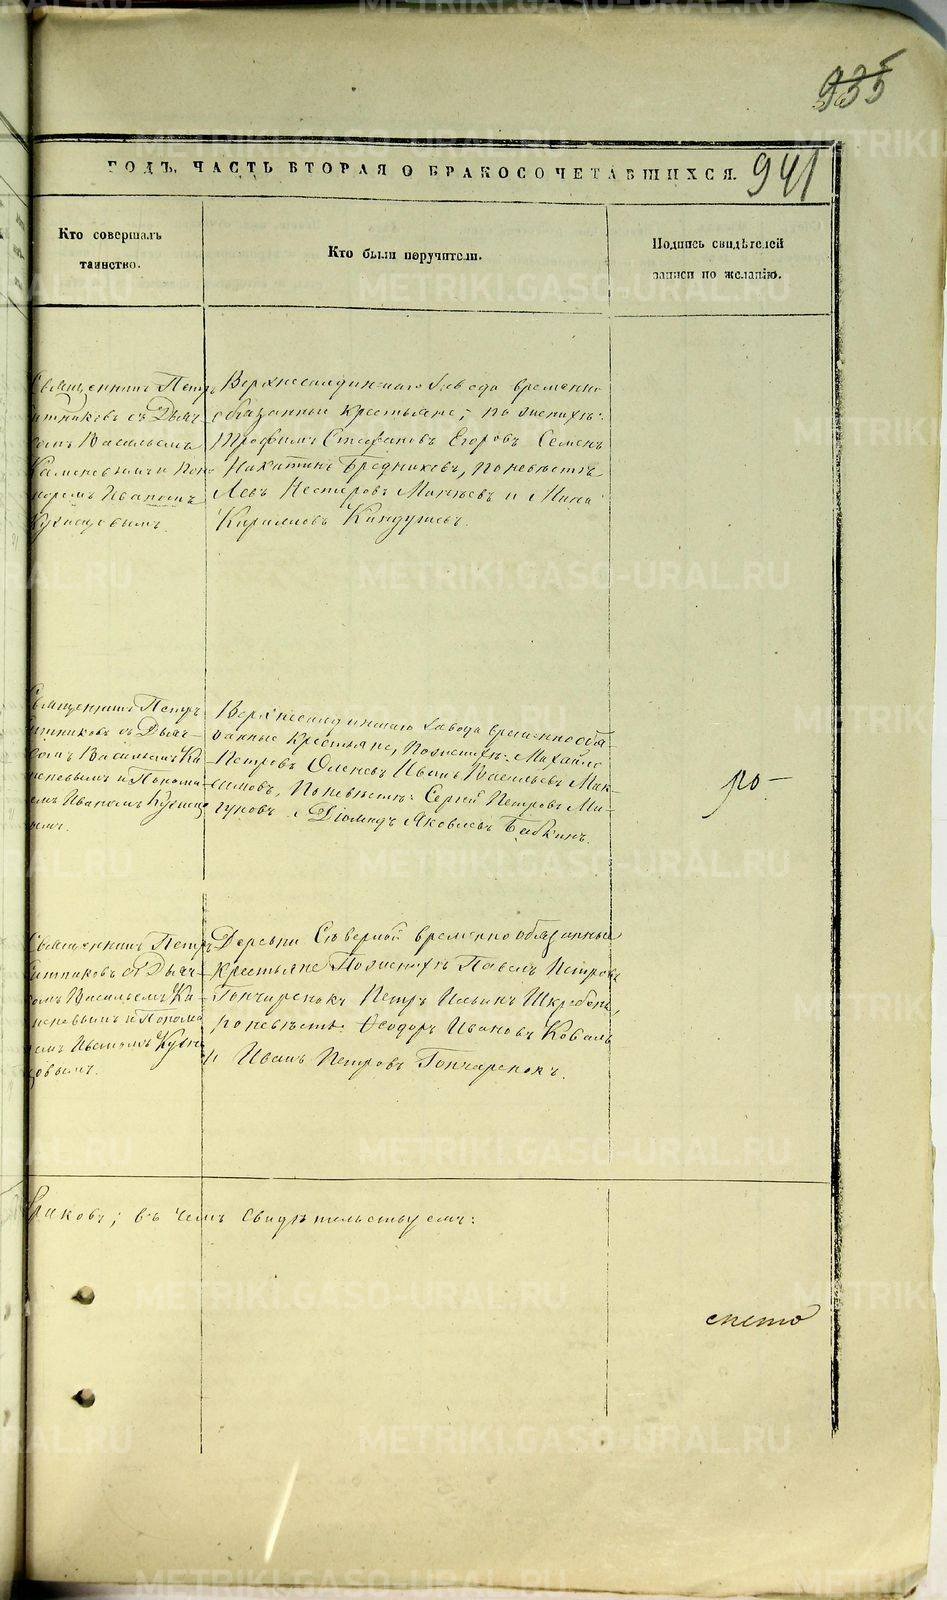 935
ГОДЪ, ЧАСТЬ ВТОРАЯ О БРАКОСОЧЕТАВШИХСЯ.
941
Кто совершалъ
таинство.
Кто были поручители.
Подпись свидѣтелей
записи по желанію.
Священникъ Петръ
ситниковъ съ Дьяч-
комъ Васильемъ
Каменевымъ и Поно-
моремъ Иваномъ
Кузнецовымъ.
Верхнесалдинскаго завода временно
обязанные крестьяне; по женихѣ:
Трофимъ Стефановъ Егоровъ Семенъ
Никитинъ Бредниковъ, по невѣстѣ
Левъ Нестеровъ и Мина
Кирилловъ
Священникъ Петръ
ситниковъ съ Дьяч-
комъ Васильемъ Ка-
меневымъ и Понома-
ремъ Иваномъ Кузнецо
вымъ.
Верхнесалдинскаго завода временнообя
занные крестьяне, по женихѣ: Михайло
Петровъ Иванъ Васильевъ Мак-
симовъ, по невѣстѣ: Сергѣй Петровъ Ми-
гуновъ и Діомидъ Яковлевъ Бабкинъ.
ро-
Священникъ Петръ
Ситниковъ съ Дьяч-
комъ Васильемъ Ка-
меневымъ и Понома
ремъ Иваномъ Кузне
цовымъ.
Деревни Сѣверной временно обязанные
крестьяне По женихѣ Павелъ Петровъ
Гончаренокъ Петръ Ильинъ
по невѣстѣ: Ѳеодоръ Ивановъ Коваль
и Иванъ Петровъ Гончаренокъ.
браковъ; въ чемъ свидѣтельствуемъ:
METRIKI.GASO-URAL.RU